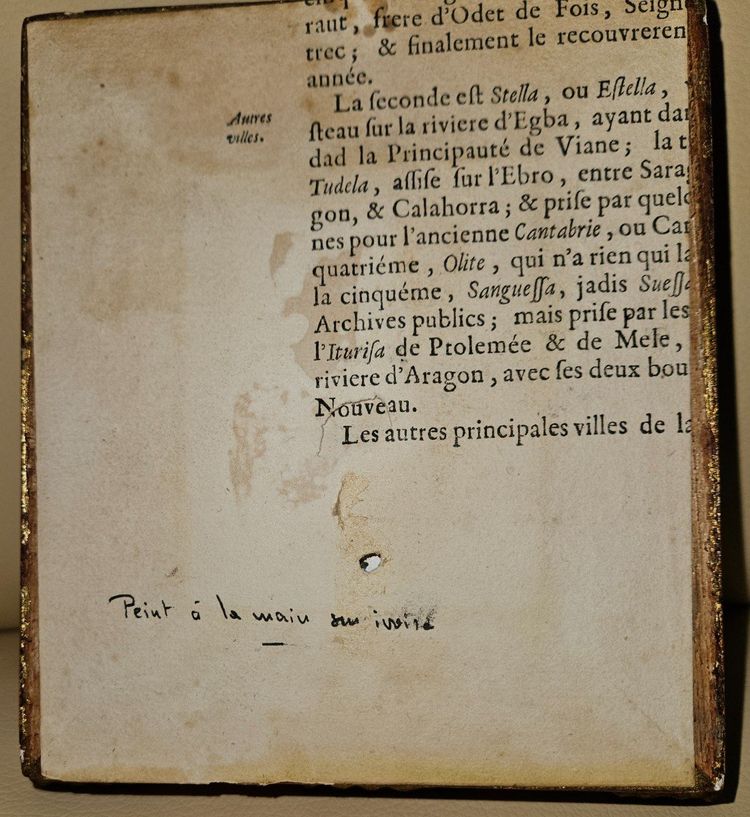 raut, frere d'Odet de Fois, Seign
trec; & finalement le recouvreren
année.
La ſeconde eſt Stella, ou Eſtella,
Autres
villes.
ſteau ſur la riviere d'Egba, ayant dan
dad la Principauté de Viane; la t
Tudela, aſſiſe ſur l'Ebro, entre Sara
gon, & Calahorra; & priſe par quelq
nes pour l'ancienne Cantabrie, ou Can
quatriéme, Olite, qui n'a rien qui la
la cinquéme, Sangueſſa, jadis Sueſſa
Archives publics; mais priſe par les
l'Ituriſa de Ptolemée & de Mele,
riviere d'Aragon, avec ſes deux bou
Nouveau.
Les autres principales villes de la
Peint à la main sur ivoire